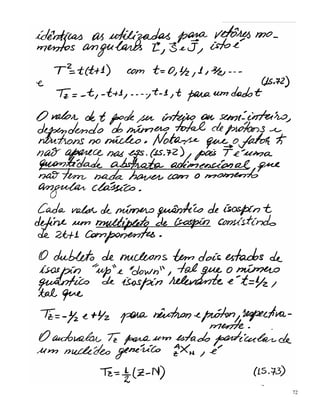 idênticas as utilizadas para vetores mo-
mentos angulares L⃗, S⃗ e J⃗, isto é
T² = t(t+1) com t = 0, 1/2, 1, 3/2, ...
(15.72)
e
T_z = -t, -t+1, ..., t-1, t para um dado t
O valor de t pode ser inteiro ou semi-inteiro,
dependendo do número total de prótons e
nêutrons no núcleo. Nota-se que o fator ħ
não aparece nas eqs. (15.72), pois T⃗ é uma
quantidade abstrata adimensional, que
não tem nada haver com o momento
angular clássico.
Cada valor de número quântico de isospin t
define um multipleto de isospin consistindo
de 2t+1 componentes.
O dubleto de nucleons tem dois estados de
isospin "up" e "down", tal que o número
quântico de isospin relevante é t = 1/2,
tal que
T_z = -1/2 e +1/2 para nêutron e próton, respectiva-
mente.
O autovalor T_z para um estado particular de
um nuclídeo genérico ᴬ_Z X_N, é
T_z = 1/2 (Z-N) (15.73)
72